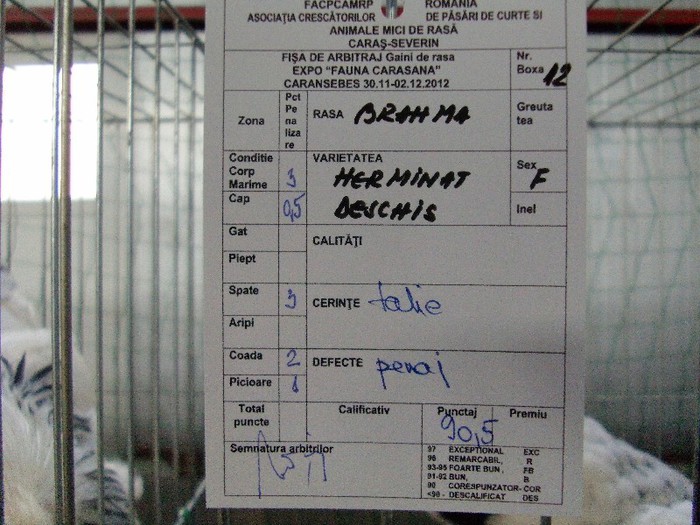 FACPCAMRP ROMÂNIA
ASOCIAŢIA CRESCĂTORILOR DE PĂSĂRI DE CURTE SI
ANIMALE MICI DE RASĂ
CARAŞ-SEVERIN
FIŞA DE ARBITRAJ Gaini de rasa
EXPO "FAUNA CARASANA"
CARANSEBES 30.11-02.12.2012
Nr.
Boxa 12
Zona
Pct
Pe
na
liza
re
RASA BRAHMA
Greuta
tea
Conditie
Corp
Marime 3
VARIETATEA
HERMINAT
DESCHIS
Sex
F
Cap 0,5
Inel
Gat
Piept
CALITĂŢI
Spate 3
Aripi
CERINŢE talie
Coada 2
Picioare 1
DEFECTE penaj
Total
puncte
Calificativ
Punctaj
90,5
Premiu
Semnatura arbitrilor
97 EXCEPTIONAL EXC
96 REMARCABIL, R
93-95 FOARTE BUN, FB
91-92 BUN, B
90 CORESPUNZATOR- COR
<90 - DESCALIFICAT DES